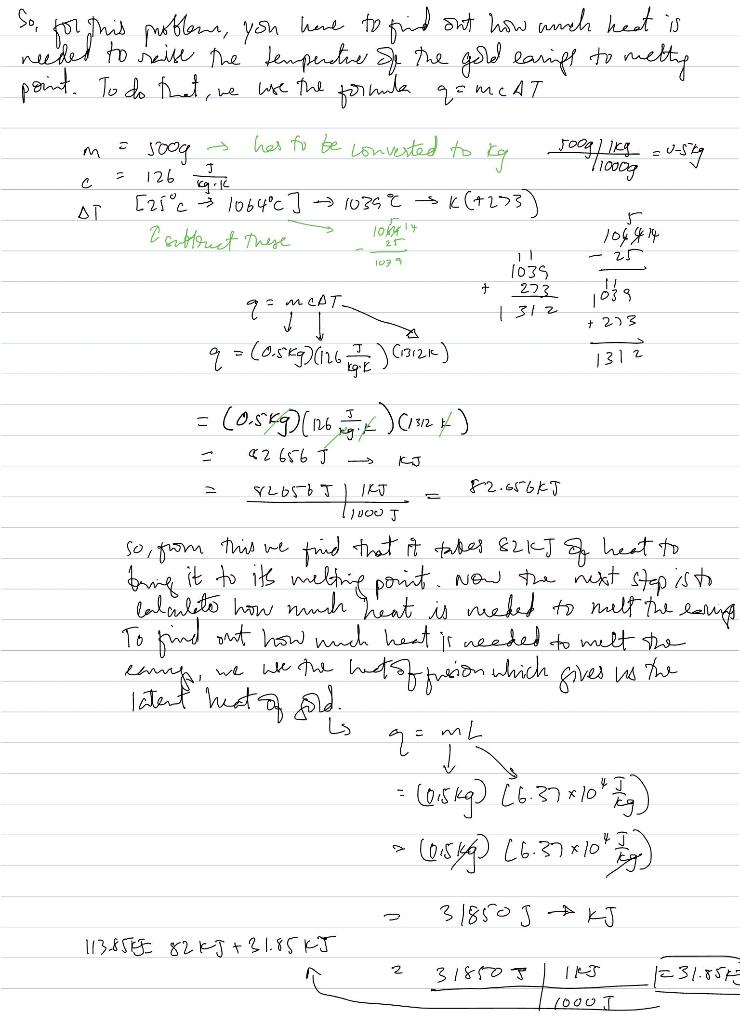 So, for this problem, you have to find out how much heat is
needed to raise the temperature of the gold earings to melting
point. To do that, we use the formula q = mcΔT
m = 500g → has to be converted to kg 500g | 1kg / 1000g = 0.5kg
c = 126 J / kg·K
ΔT [25°C → 1064°C] → 1039°C → K (+273)
subtract these → 1064 - 25 1039
1039 + 273 1312
1064 - 25 1039 + 273 1312
q = mcΔT
q = (0.5kg)(126 J / kg·K)(1312K)
= (0.5kg)(126 J / kg·K)(1312 K)
= 82656 J → KJ
= 82656 J | 1KJ / 1000 J = 82.656KJ
So, from this we find that it takes 82KJ of heat to
bring it to its melting point. Now the next step is to
calculate how much heat is needed to melt the earings
To find out how much heat is needed to melt the
earings, we use the heat of fusion which gives us the
latent heat of gold.
q = mL
= (0.5kg) (6.37 × 10⁴ J / kg)
= (0.5kg) (6.37 × 10⁴ J / kg)
= 31850 J → KJ
113.85KJ = 82KJ + 31.85KJ
= 31850 J | 1KJ / 1000 J = 31.85KJ